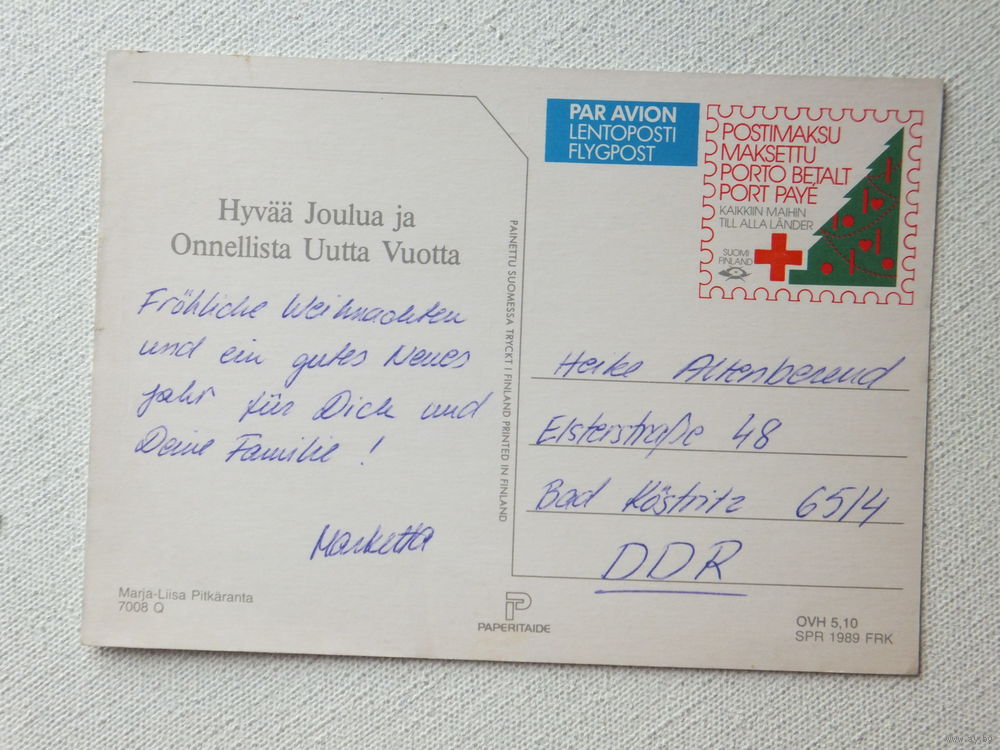 Hyvää Joulua ja
Onnellista Uutta Vuotta
Fröhliche Weihnachten
und ein gutes Neues
Jahr für Dich und
Deine Familie !
Marketta
Marja-Liisa Pitkäranta
7008 Q
PAINETTU SUOMESSA TRYCKT I FINLAND PRINTED IN FINLAND
PAPERITAIDE
PAR AVION
LENTOPOSTI
FLYGPOST
POSTIMAKSU
MAKSETTU
PORTO BETALT
PORT PAYÉ
KAIKKIIN MAIHIN
TILL ALLA LÄNDER
SUOMI
FINLAND
Heike Altenberend
Elsterstraße 48
Bad Köstritz 6514
DDR
OVH 5,10
SPR 1989 FRK
www.ay.by